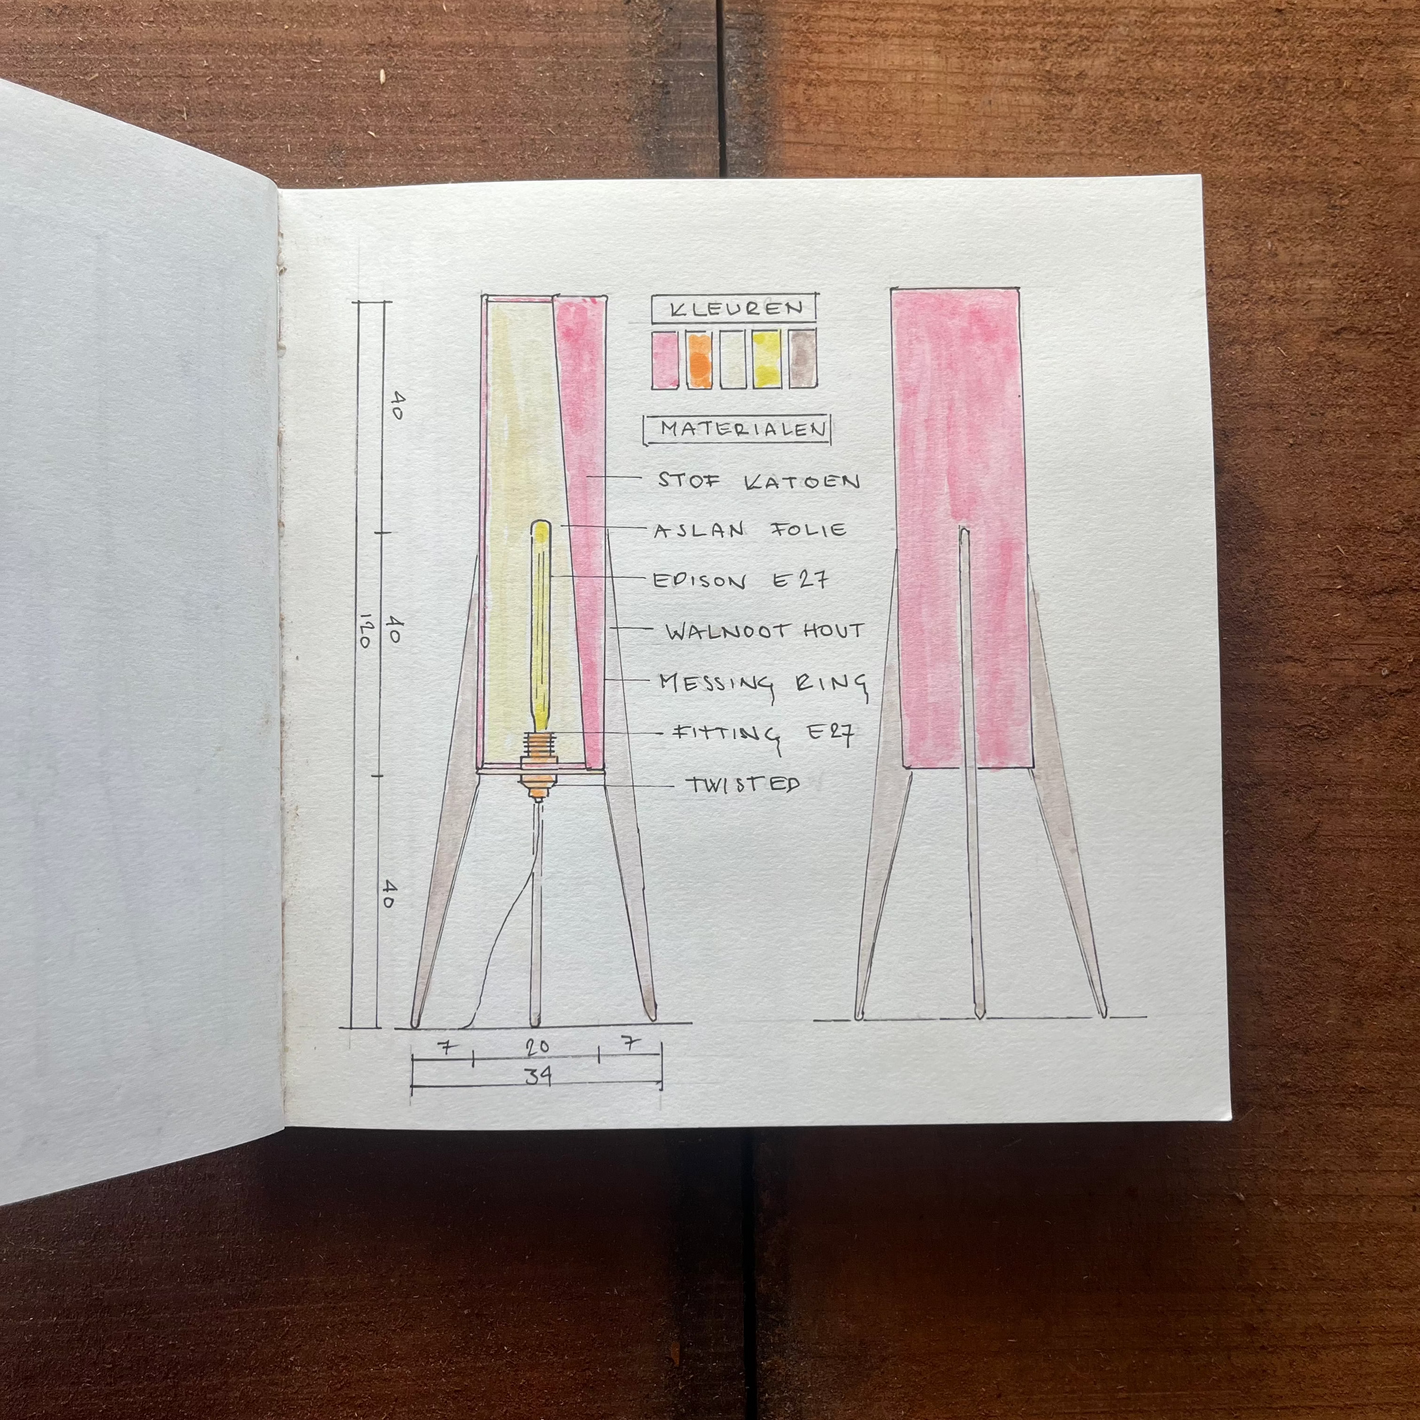 KLEUREN
MATERIALEN
STOF KATOEN
ASLAN FOLIE
EDISON E27
WALNOOT HOUT
MESSING RING
FITTING E27
TWISTED
40
40
120
40
7 20 7
34